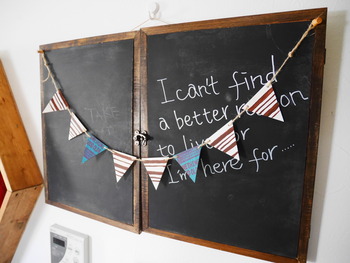 I can't find
a better
to
I'm here for .....